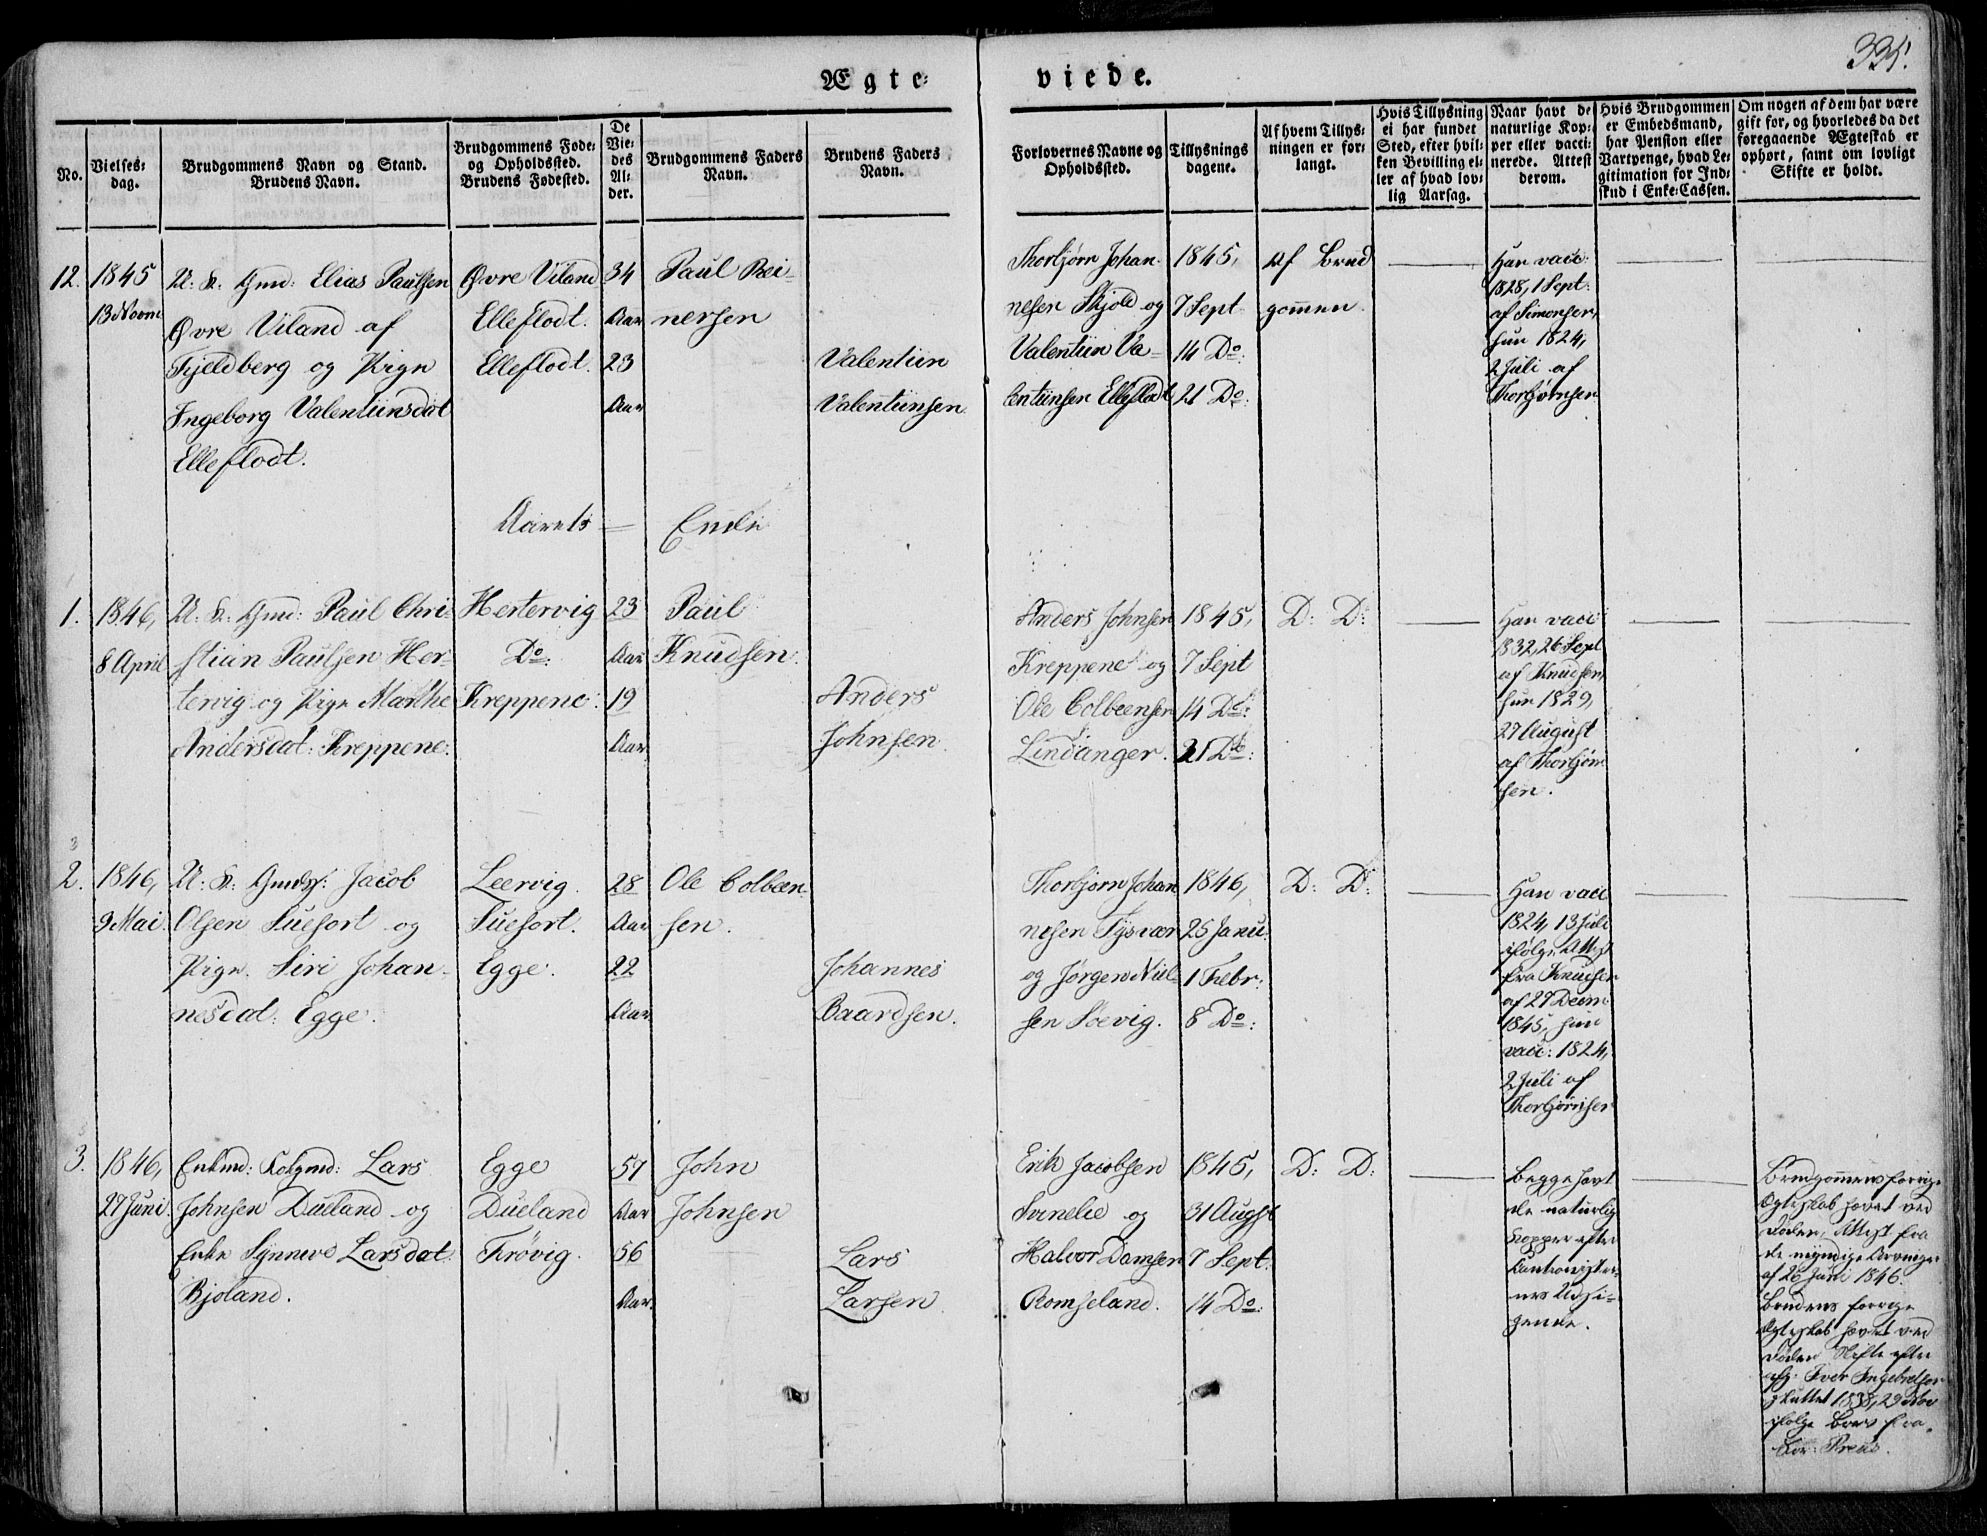 335.
Ægte- viede.
No.
Vielses-
dag.
Brudgommens Navn og Stand.
Brudens Navn.
Brudgommens Føde-
og Opholdssted.
Brudens Fødested.
De
Vie-
des
Al-
der.
Brudgommens Faders
Navn.
Brudens Faders
Navn.
Forlovernes Navne og
Opholdssted.
Tillysnings
dagene.
Af hvem Tillys-
ningen er for-
langt.
Hvis Tillysning
ei har fundet
Sted, efter hvil-
ken Bevilling el-
ler af hvad lov-
lig Aarsag.
Naar havt de
naturlige Kop-
per eller vacci-
nerede. Attest
derom.
Hvis Brudgommen
er Embedsmand,
har Pension eller
Vartpenge, hvad Le-
gitimation for Ind-
skud i Enke-Cassen.
Om nogen af dem har være
gift før, og hvorledes da det
foregaaende Ægteskab er
ophørt, samt om lovligt
Skifte er holdt.
12.
1845
13 Novm
U. K. Gmd: Elias Paulsen
Øvre Viland af
Fjeldberg og Pign
Ingeborg Valentiinsdat
Elleflodt.
Øvre Viland
Elleflodt.
Elleflodt.
34
Aar
23
Aar
Paul Rei-
nersen
Valentiin
Valentiinsen.
Thorbjørn Johan-
nesen Skjold og
Valentiin Va-
lentiinsen Elleflodt
1845,
7 Sept
14 Do:
21 Do:
Af Brud
gommen.
Han vacc:
1828, 1 Sept:
af Simonsen,
hun 1824,
2 Juli af
Thorbjørnsen
Aarets — Ende
1.
1846,
8 April
U: K: Gmd: Paul Chri-
stian Paulsen Her-
tervig og Pign Marthe
Andersdat: Kreppene.
Hertervig
Do:
Kreppene.
23
Aar
19
Aar
Paul
Knudsen.
Anders
Johnsen.
Anders Johnsen
Kreppene og
Ole Colbeensen
Lindanger.
1845,
7 Sept
14 Do:
21 Do:
D: D:
Han vacc
1832, 26 Sept
af Knudsen,
hun 1829,
27 August
af Thorbjørn
sen.
2.
1846,
9 Mai.
U: K: Gmds: Jacob
Olsen Tuefort og
Pign. Siri Johan-
nesdat: Egge.
Leervig.
Tuefort.
Egge.
28
Aar
22
Aar
Ole Colbeen
sen.
Johannes
Baardsen.
Thorbjørn Johan
nesen Tysvær
og Jørgen Niel-
sen Søevig.
1846,
25 Janu:
1 Febr:
8 Do:
D: D:
Han vacc
1824, 13 Juli
ifølge Attest
fra Knudsen
af 27 Decm
1845, hun
vacc: 1824,
2 Juli af
Thorbjørnsen
3.
1846,
27 Juni.
Enkmd: Lars
Johnsen Dueland og
Enke Synneve Larsdat:
Bjoland.
Egge
Dueland
Trøvig.
57
Aar
56
Aar.
John
Johnsen
Lars
Larsen.
Erik Jacobsen
Svinelie og
Halvor Damsen
Romseland.
1845,
31 Augst
7 Sept.
14 Do:
D: D:
Begge havt
de naturlig
Kopper efter
nes Udsi-
gende.
Brudgommens forrige
Egteskab hævet ved
Døden, Attest fra
de myndige Arvinger
af 26 Juni 1846.
Brudens forrige
Egteskab hævet ved
Døden Skifte efter
afg: Iver Ingebretsen
sluttet 1838, 29 Nov
ifølge Brev fra